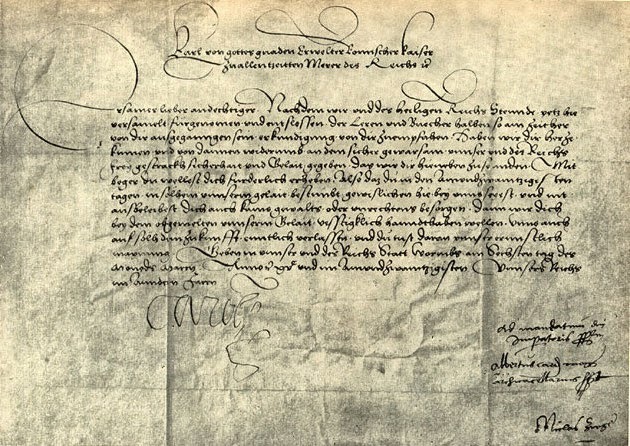 Karl von gottes gnaden Erwelter Romischer Kaiser
zu allenn tzeitten Merer des Reichs
Ersamer lieber andechtiger Nachdem wir und des Heiligen Reichs Stennde yetz hie
versamelt furgenomen und entslossen der Leren und Buecher halben so ain zeither
von dir ausgegangen sein erkundigung von dir zuempfahen Haben wir dir herzu
kumen und von dannen widerumb an dein sicher gewarsam unser und des Reichs
frey gestracks sicherhait und Glait gegeben das wir dir hieneben zusenden Mit
beger du wollest dich furderlich erheben Also das du in den ainundzwaintzig ten
tagen in solhem unnserm glait bestimbt gewislichen hie bey unns seyest und nit
aussbleibest Dich auch kains gewalts oder unrechtens besorgen Dann wir dich
bey dem obgemelten unnserm Glait vestigklich hanndthaben wellen Unns auch
auf solh dein zukunfft enntlich verlassen und du tust daran unnser ernnstlich
maynung Geben in unnser und des Reichs Statt Wormbs am Sechsten tag des
Monets Marcy Anno und im Ainundzwaintzigisten Unnsers Reichs
im Anndern Jaren
Carolus
Ad mandatum dni
Imperatoris
Albertus card mog
archicancellarius
Niclas